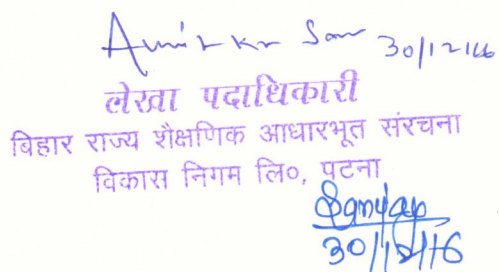 Amit Kr 30/12/16
लेखा पदाधिकारी
बिहार राज्य शैक्षणिक आधारभूत संरचना
विकास निगम लि०, पटना
30/12/16